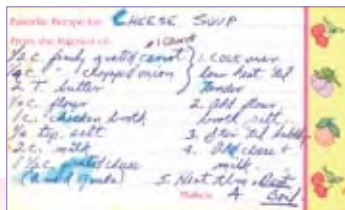 Favorite Recipe for: CHEESE SOUP
From the Kitchen of:
1 carrot
1/2 c. finely grated carrot
chopped onion
2 T. butter
flour
1 c. chicken broth
tsp. salt
2 c. milk
1 1/2 c. grated cheese
1. Cook over
low heat til
tender
2. Add flour,
broth, salt.
3. Stir til bubbly
4. Add cheese +
milk.
5. Heat thru - Don't
Boil
Makes: 4